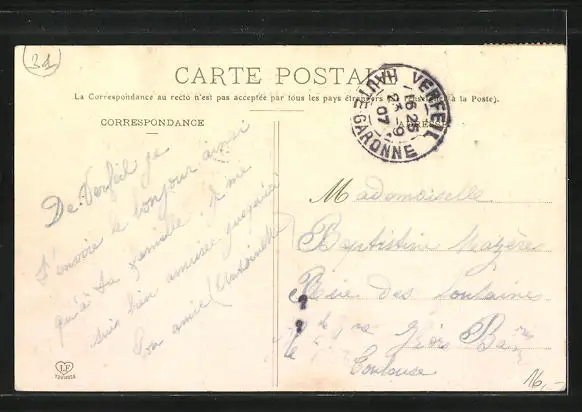 31
CARTE POSTALE
La Correspondance au recto n'est pas acceptée par tous les pays étrangers (à la Poste).
CORRESPONDANCE
VERFEIL
HAUTE GARONNE
16 25
23 - 9
07
De Verfeil je
t'envoie le bonjour ainsi
qu'à ta famille. Je me
suis bien amusée jusqu'ici
Ton amie Antoinette
Mademoiselle
Baptistine Mazères
Rue des Fontaines
Toulouse
LF
16,-